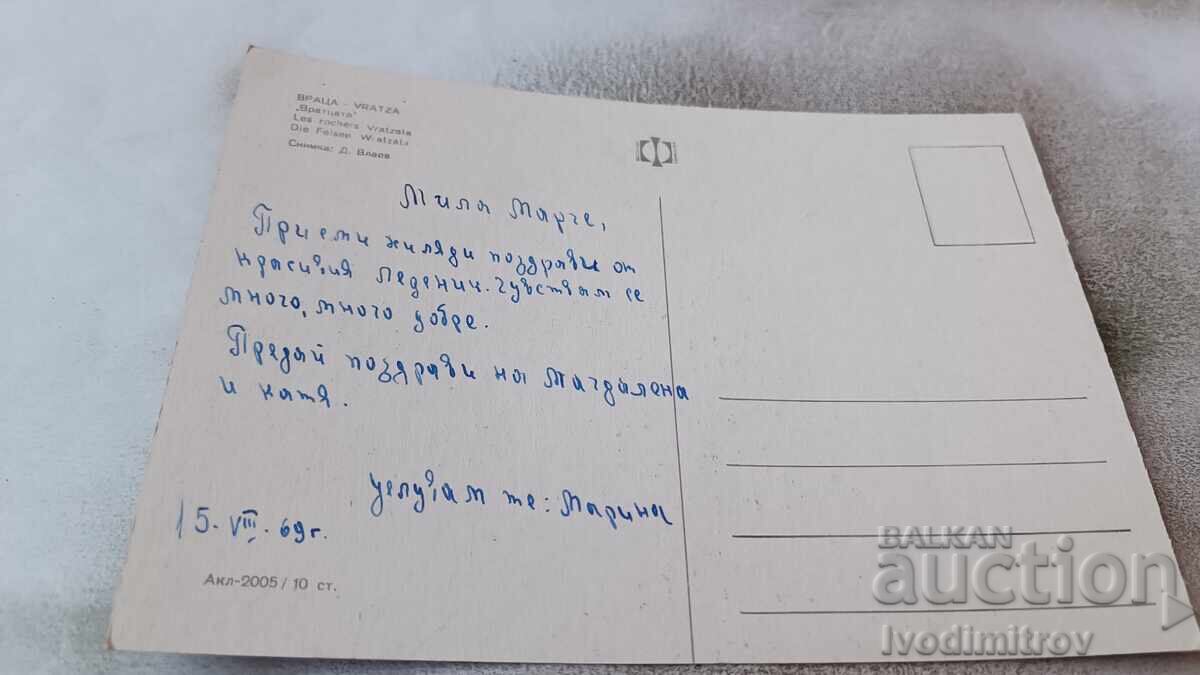 ВРАЦА - VRATZA
„Вратцата"
Les rochers Vratzata
Die Felsen Wratzata
Снимка: Д. Влаев
Мила Марче,
Приеми хиляди поздрави от
красивия Леденик. Чувствам се
много, много добре.
Предай поздрави на Магдалена
и Катя.
Целувам те: Марина
15. VIII. 69 г.
Акл-2005 / 10 ст.
BALKAN
auction
Ivodimitrov